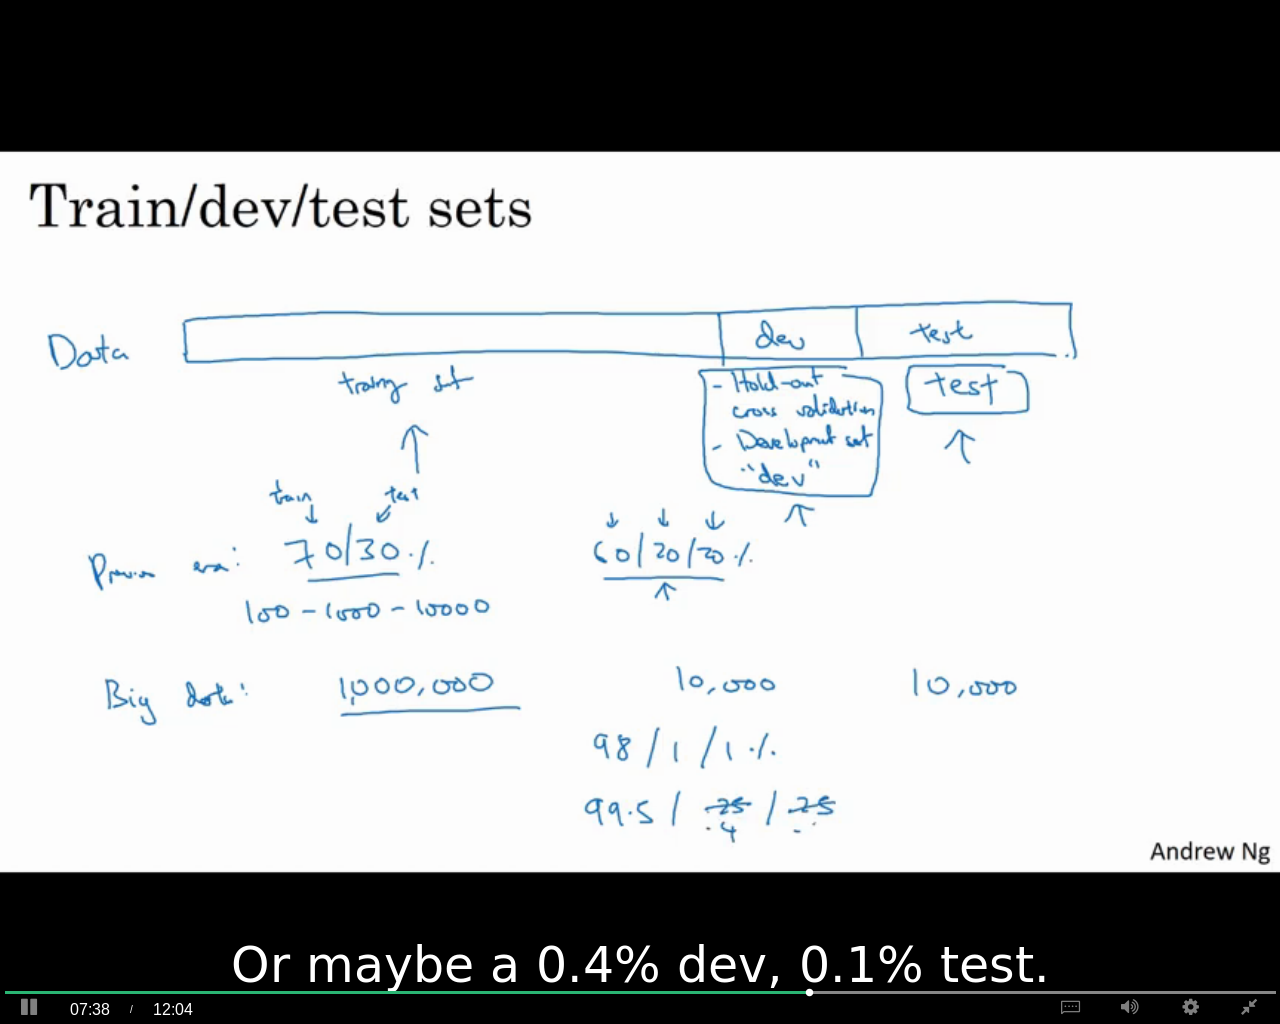 Train/dev/test sets
Data
dev
test
training set
- Hold-out
cross validation
- Development set
"dev"
test
train
test
Previous era:
70/30 %
60/20/20 %
100 - 1000 - 10000
Big data:
1,000,000
10,000
10,000
98 / 1 / 1 %
99.5 / 25 / 25
.4
Andrew Ng
Or maybe a 0.4% dev, 0.1% test.
07:38 / 12:04